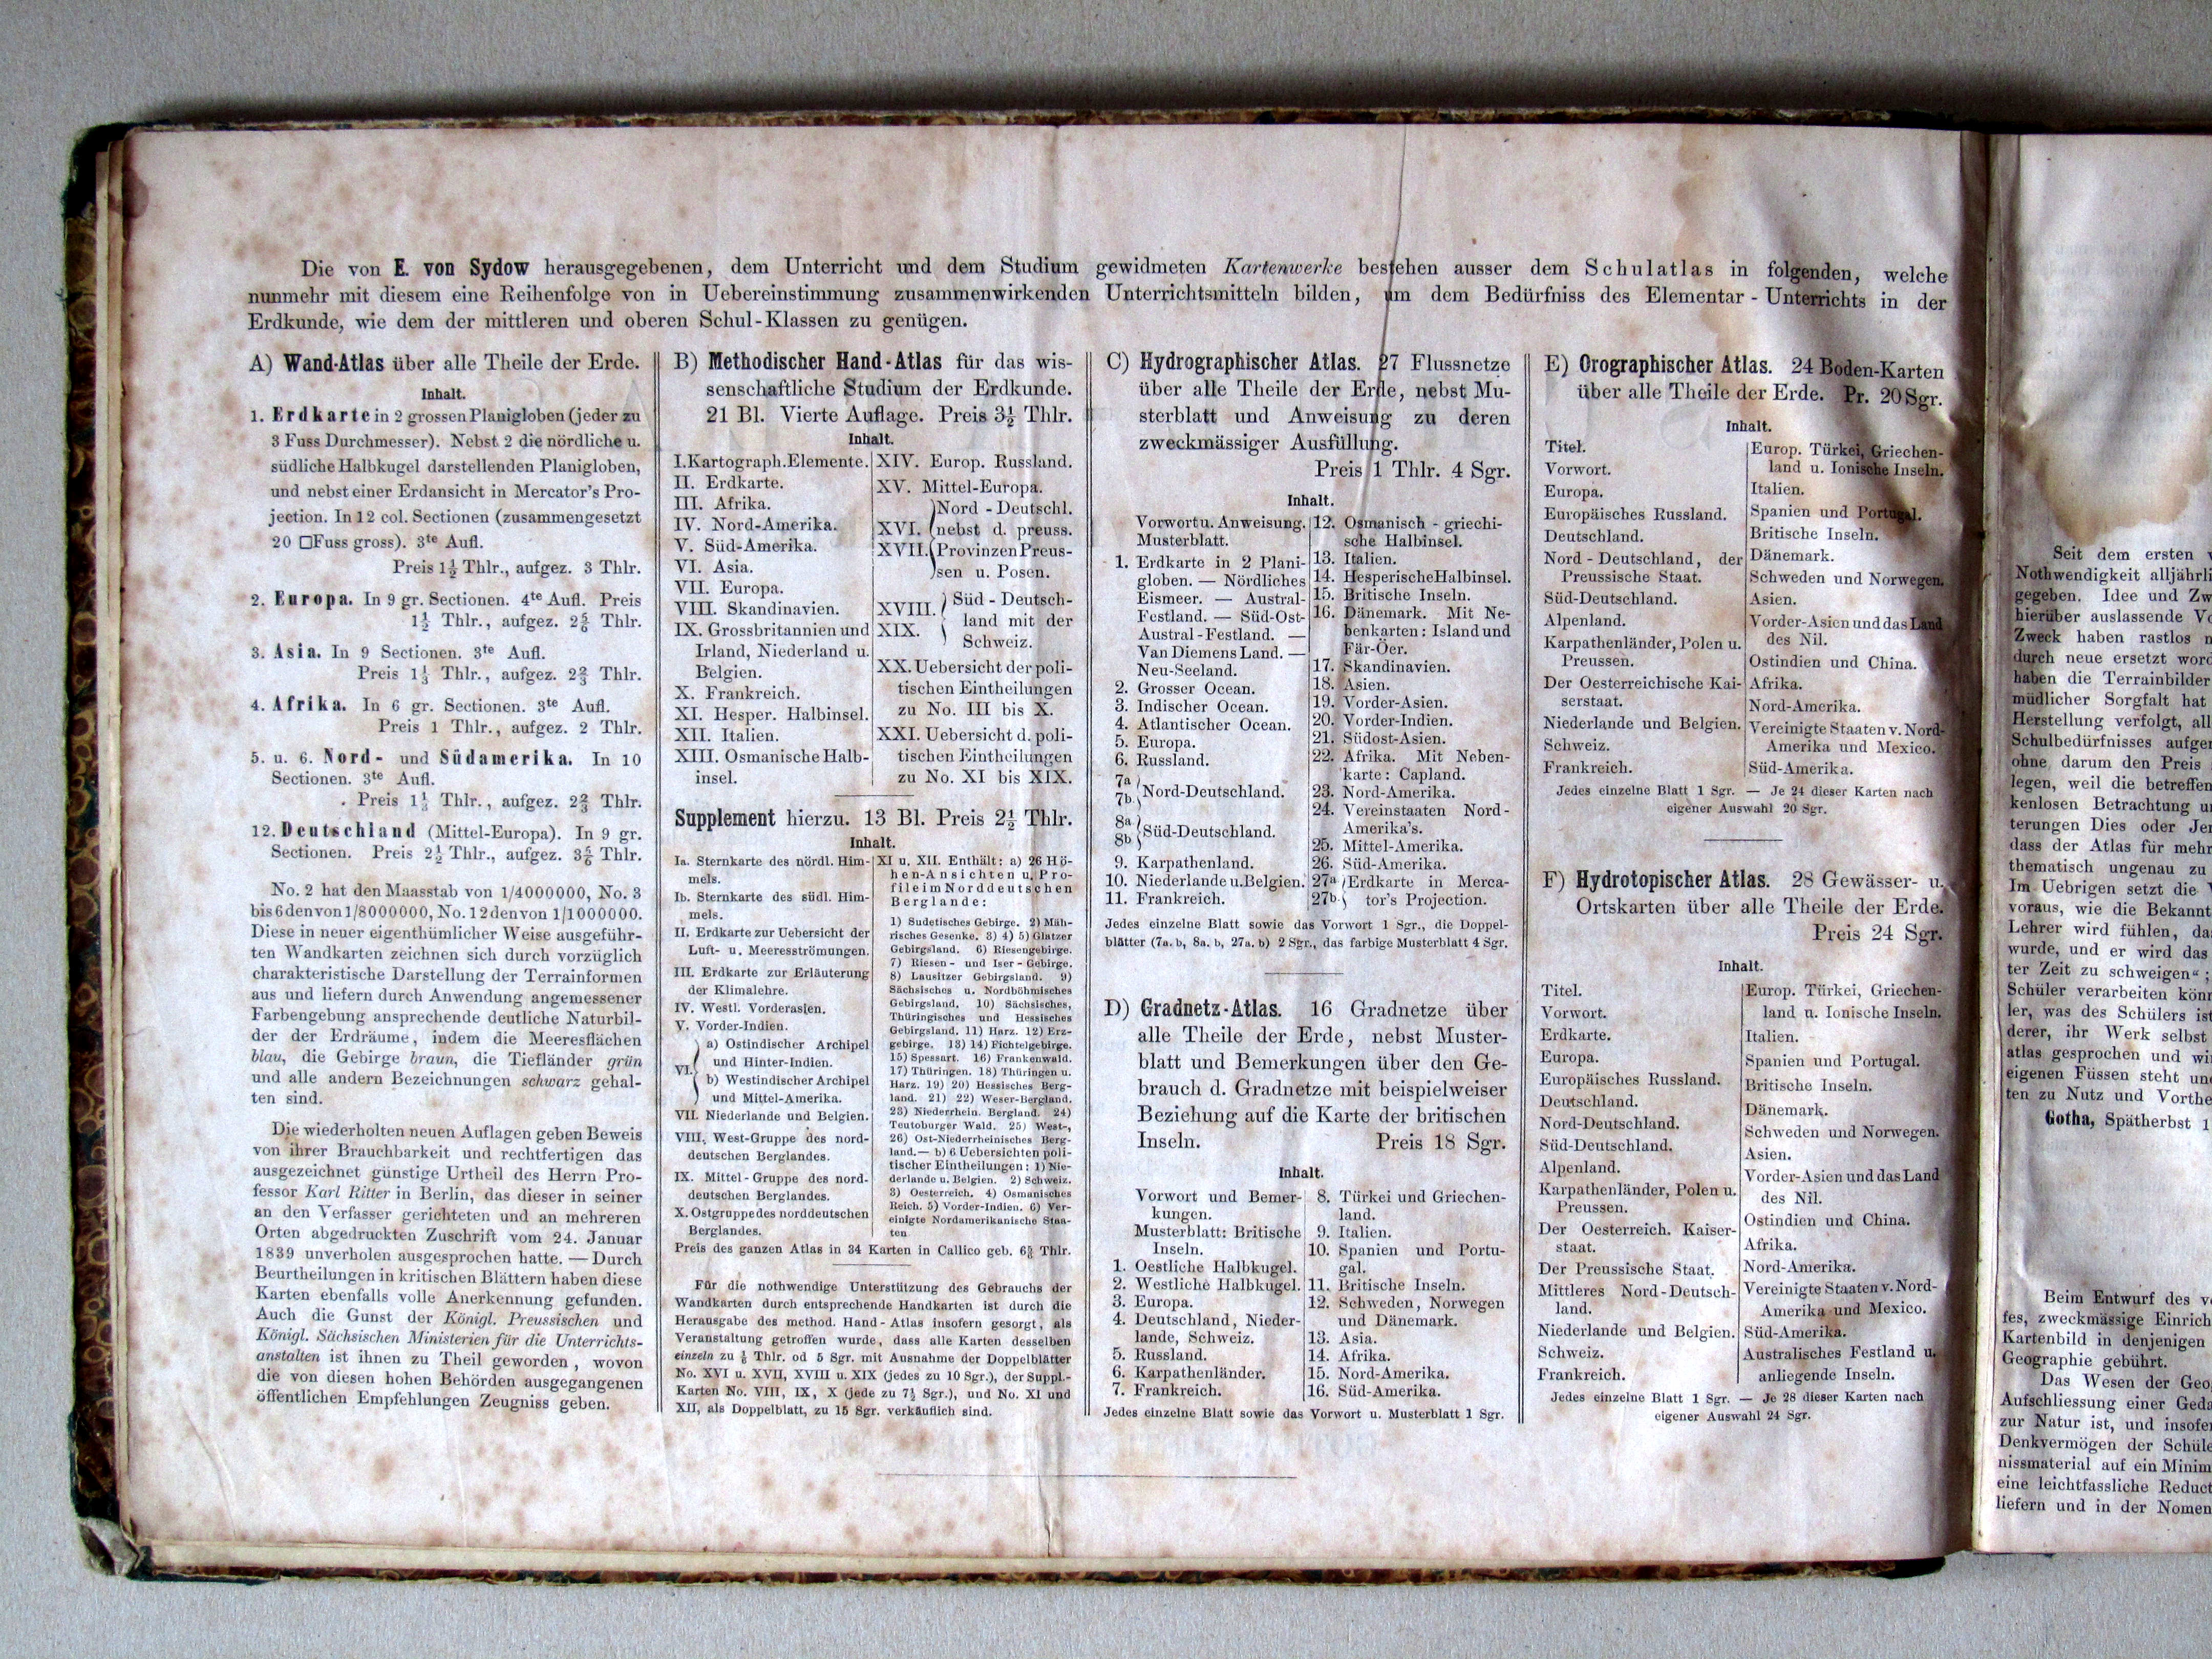 Die von E. von Sydow herausgegebenen, dem Unterricht und dem Studium gewidmeten Kartenwerke bestehen ausser dem Schulatlas in folgenden, welche
nunmehr mit diesem eine Reihenfolge von in Uebereinstimmung zusammenwirkenden Unterrichtsmitteln bilden, um dem Bedürfniss des Elementar-Unterrichts in der
Erdkunde, wie dem der mittleren und oberen Schul-Klassen zu genügen.
A) Wand-Atlas über alle Theile der Erde.
Inhalt.
1. Erdkarte in 2 grossen Planigloben (jeder zu
3 Fuss Durchmesser). Nebst 2 die nördliche u.
südliche Halbkugel darstellenden Planigloben,
und nebst einer Erdansicht in Mercator's Pro-
jection. In 12 col. Sectionen (zusammengesetzt
20 □Fuss gross). 3te Aufl.
Preis 1½ Thlr., aufgez. 3 Thlr.
2. Europa. In 9 gr. Sectionen. 4te Aufl. Preis
1½ Thlr., aufgez. 2⅚ Thlr.
3. Asia. In 9 Sectionen. 3te Aufl.
Preis 1⅓ Thlr., aufgez. 2⅔ Thlr.
4. Afrika. In 6 gr. Sectionen. 3te Aufl.
Preis 1 Thlr., aufgez. 2 Thlr.
5. u. 6. Nord- und Südamerika. In 10
Sectionen. 3te Aufl.
Preis 1⅓ Thlr., aufgez. 2⅔ Thlr.
12. Deutschland (Mittel-Europa). In 9 gr.
Sectionen. Preis 2½ Thlr., aufgez. 3⅚ Thlr.
No. 2 hat den Maasstab von 1/4000000, No. 3
bis 6 den von 1/8000000, No. 12 den von 1/1000000.
Diese in neuer eigenthümlicher Weise ausgeführ-
ten Wandkarten zeichnen sich durch vorzüglich
charakteristische Darstellung der Terrainformen
aus und liefern durch Anwendung angemessener
Farbengebung ansprechende deutliche Naturbil-
der der Erdräume, indem die Meeresflächen
blau, die Gebirge braun, die Tiefländer grün
und alle andern Bezeichnungen schwarz gehal-
ten sind.
Die wiederholten neuen Auflagen geben Beweis
von ihrer Brauchbarkeit und rechtfertigen das
ausgezeichnet günstige Urtheil des Herrn Pro-
fessor Karl Ritter in Berlin, das dieser in seiner
an den Verfasser gerichteten und an mehreren
Orten abgedruckten Zuschrift vom 24. Januar
1839 unverholen ausgesprochen hatte. — Durch
Beurtheilungen in kritischen Blättern haben diese
Karten ebenfalls volle Anerkennung gefunden.
Auch die Gunst der Königl. Preussischen und
Königl. Sächsischen Ministerien für die Unterrichts-
anstalten ist ihnen zu Theil geworden, wovon
die von diesen hohen Behörden ausgegangenen
öffentlichen Empfehlungen Zeugniss geben.
B) Methodischer Hand-Atlas für das wis-
senschaftliche Studium der Erdkunde.
21 Bl. Vierte Auflage. Preis 3½ Thlr.
Inhalt.
I. Kartograph. Elemente.
II. Erdkarte.
III. Afrika.
IV. Nord-Amerika.
V. Süd-Amerika.
VI. Asia.
VII. Europa.
VIII. Skandinavien.
IX. Grossbritannien und
Irland, Niederland u.
Belgien.
X. Frankreich.
XI. Hesper. Halbinsel.
XII. Italien.
XIII. Osmanische Halb-
insel.
XIV. Europ. Russland.
XV. Mittel-Europa.
Nord-Deutschl.
XVI. nebst d. preuss.
XVII. Provinzen Preus-
sen u. Posen.
XVIII. Süd-Deutsch-
XIX. land mit der
Schweiz.
XX. Uebersicht der poli-
tischen Eintheilungen
zu No. III bis X.
XXI. Uebersicht d. poli-
tischen Eintheilungen
zu No. XI bis XIX.
Supplement hierzu. 13 Bl. Preis 2½ Thlr.
Inhalt.
Ia. Sternkarte des nördl. Him-
mels.
Ib. Sternkarte des südl. Him-
mels.
II. Erdkarte zur Uebersicht der
Luft- u. Meeresströmungen.
III. Erdkarte zur Erläuterung
der Klimalehre.
IV. Westl. Vorderasien.
V. Vorder-Indien.
VI. a) Ostindischer Archipel
und Hinter-Indien.
b) Westindischer Archipel
und Mittel-Amerika.
VII. Niederlande und Belgien.
VIII. West-Gruppe des nord-
deutschen Berglandes.
IX. Mittel-Gruppe des nord-
deutschen Berglandes.
X. Ostgruppe des norddeutschen
Berglandes.
XI u. XII. Enthält: a) 26 Hö-
hen-Ansichten u. Pro-
file im Norddeutschen
Berglande:
1) Sudetisches Gebirge. 2) Mäh-
risches Gesenke. 3) 4) 5) Glatzer
Gebirgsland. 6) Riesengebirge.
7) Riesen- und Iser-Gebirge.
8) Lausitzer Gebirgsland. 9)
Sächsisches u. Nordböhmisches
Gebirgsland. 10) Sächsisches,
Thüringisches und Hessisches
Gebirgsland. 11) Harz. 12) Erz-
gebirge. 13) 14) Fichtelgebirge.
15) Spessart. 16) Frankenwald.
17) Thüringen. 18) Thüringen u.
Harz. 19) 20) Hessisches Berg-
land. 21) 22) Weser-Bergland.
23) Niederrhein. Bergland. 24)
Teutoburger Wald. 25) West-,
26) Ost-Niederrheinisches Berg-
land. — b) 6 Uebersichten poli-
tischer Eintheilungen: 1) Nie-
derlande u. Belgien. 2) Schweiz.
3) Oesterreich. 4) Osmanisches
Reich. 5) Vorder-Indien. 6) Ver-
einigte Nordamerikanische Staa-
ten
Preis des ganzen Atlas in 34 Karten in Callico geb. Thlr.
Für die nothwendige Unterstützung des Gebrauchs der
Wandkarten durch entsprechende Handkarten ist durch die
Herausgabe des method. Hand-Atlas insofern gesorgt, als
Veranstaltung getroffen wurde, dass alle Karten desselben
einzeln zu ⅙ Thlr. od 5 Sgr. mit Ausnahme der Doppelblätter
No. XVI u. XVII, XVIII u. XIX (jedes zu 10 Sgr.), der Suppl.-
Karten No. VIII, IX, X (jede zu 7½ Sgr.), und No. XI und
XII, als Doppelblatt, zu 15 Sgr. verkäuflich sind.
C) Hydrographischer Atlas. 27 Flussnetze
über alle Theile der Erde, nebst Mu-
sterblatt und Anweisung zu deren
zweckmässiger Ausfüllung.
Preis 1 Thlr. 4 Sgr.
Inhalt.
Vorwort u. Anweisung.
Musterblatt.
1. Erdkarte in 2 Plani-
globen. — Nördliches
Eismeer. — Austral-
Festland. — Süd-Ost-
Austral-Festland. —
Van Diemens Land. —
Neu-Seeland.
2. Grosser Ocean.
3. Indischer Ocean.
4. Atlantischer Ocean.
5. Europa.
6. Russland.
7a
7b. Nord-Deutschland.
8a
8b Süd-Deutschland.
9. Karpathenland.
10. Niederlande u. Belgien.
11. Frankreich.
12. Osmanisch-griechi-
sche Halbinsel.
13. Italien.
14. Hesperische Halbinsel.
15. Britische Inseln.
16. Dänemark. Mit Ne-
benkarten: Island und
Fär-Öer.
17. Skandinavien.
18. Asien.
19. Vorder-Asien.
20. Vorder-Indien.
21. Südost-Asien.
22. Afrika. Mit Neben-
karte: Capland.
23. Nord-Amerika.
24. Vereinstaaten Nord-
Amerika's.
25. Mittel-Amerika.
26. Süd-Amerika.
27a Erdkarte in Merca-
27b. tor's Projection.
Jedes einzelne Blatt sowie das Vorwort 1 Sgr., die Doppel-
blätter (7a. b, 8a. b, 27a. b) 2 Sgr., das farbige Musterblatt 4 Sgr.
D) Gradnetz-Atlas. 16 Gradnetze über
alle Theile der Erde, nebst Muster-
blatt und Bemerkungen über den Ge-
brauch d. Gradnetze mit beispielweiser
Beziehung auf die Karte der britischen
Inseln. Preis 18 Sgr.
Inhalt.
Vorwort und Bemer-
kungen.
Musterblatt: Britische
Inseln.
1. Oestliche Halbkugel.
2. Westliche Halbkugel.
3. Europa.
4. Deutschland, Nieder-
lande, Schweiz.
5. Russland.
6. Karpathenländer.
7. Frankreich.
8. Türkei und Griechen-
land.
9. Italien.
10. Spanien und Portu-
gal.
11. Britische Inseln.
12. Schweden, Norwegen
und Dänemark.
13. Asia.
14. Afrika.
15. Nord-Amerika.
16. Süd-Amerika.
Jedes einzelne Blatt sowie das Vorwort u. Musterblatt 1 Sgr.
E) Orographischer Atlas. 24 Boden-Karten
über alle Theile der Erde. Pr. 20 Sgr.
Inhalt.
Titel.
Vorwort.
Europa.
Europäisches Russland.
Deutschland.
Nord-Deutschland, der
Preussische Staat.
Süd-Deutschland.
Alpenland.
Karpathenländer, Polen u.
Preussen.
Der Oesterreichische Kai-
serstaat.
Niederlande und Belgien.
Schweiz.
Frankreich.
Europ. Türkei, Griechen-
land u. Ionische Inseln.
Italien.
Spanien und Portugal.
Britische Inseln.
Dänemark.
Schweden und Norwegen.
Asien.
Vorder-Asien und das Land
des Nil.
Ostindien und China.
Afrika.
Nord-Amerika.
Vereinigte Staaten v. Nord-
Amerika und Mexico.
Süd-Amerika.
Jedes einzelne Blatt 1 Sgr. — Je 24 dieser Karten nach
eigener Auswahl 20 Sgr.
F) Hydrotopischer Atlas. 28 Gewässer- u.
Ortskarten über alle Theile der Erde.
Preis 24 Sgr.
Inhalt.
Titel.
Vorwort.
Erdkarte.
Europa.
Europäisches Russland.
Deutschland.
Nord-Deutschland.
Süd-Deutschland.
Alpenland.
Karpathenländer, Polen u.
Preussen.
Der Oesterreich. Kaiser-
staat.
Der Preussische Staat.
Mittleres Nord-Deutsch-
land.
Niederlande und Belgien.
Schweiz.
Frankreich.
Europ. Türkei, Griechen-
land u. Ionische Inseln.
Italien.
Spanien und Portugal.
Britische Inseln.
Dänemark.
Schweden und Norwegen.
Asien.
Vorder-Asien und das Land
des Nil.
Ostindien und China.
Afrika.
Nord-Amerika.
Vereinigte Staaten v. Nord-
Amerika und Mexico.
Süd-Amerika.
Australisches Festland u.
anliegende Inseln.
Jedes einzelne Blatt 1 Sgr. — Je 28 dieser Karten nach
eigener Auswahl 24 Sgr.
Seit dem ersten
Nothwendigkeit alljährli
gegeben. Idee und Zw
hierüber auslassende Vo
Zweck haben rastlos
durch neue ersetzt word
haben die Terrainbilder
müdlicher Sorgfalt hat
Herstellung verfolgt, all
Schulbedürfnisses aufge
ohne darum den Preis
legen, weil die betreffen
kenlosen Betrachtung u
terungen Dies oder Je
dass der Atlas für mehr
thematisch ungenau zu
Im Uebrigen setzt die
voraus, wie die Bekannt
Lehrer wird fühlen, da
wurde, und er wird das
ter Zeit zu schweigen“;
Schüler verarbeiten könn
ler, was des Schülers ist
derer, ihr Werk selbst
atlas gesprochen und wi
eigenen Füssen steht un
ten zu Nutz und Vorthe
Gotha, Spätherbst 1
Beim Entwurf des v
fes, zweckmässige Einrich
Kartenbild in denjenigen
Geographie gebührt.
Das Wesen der Geo
Aufschliessung einer Geda
zur Natur ist, und insofer
Denkvermögen der Schüle
nissmaterial auf ein Minim
eine leichtfassliche Reduct
liefern und in der Nomen